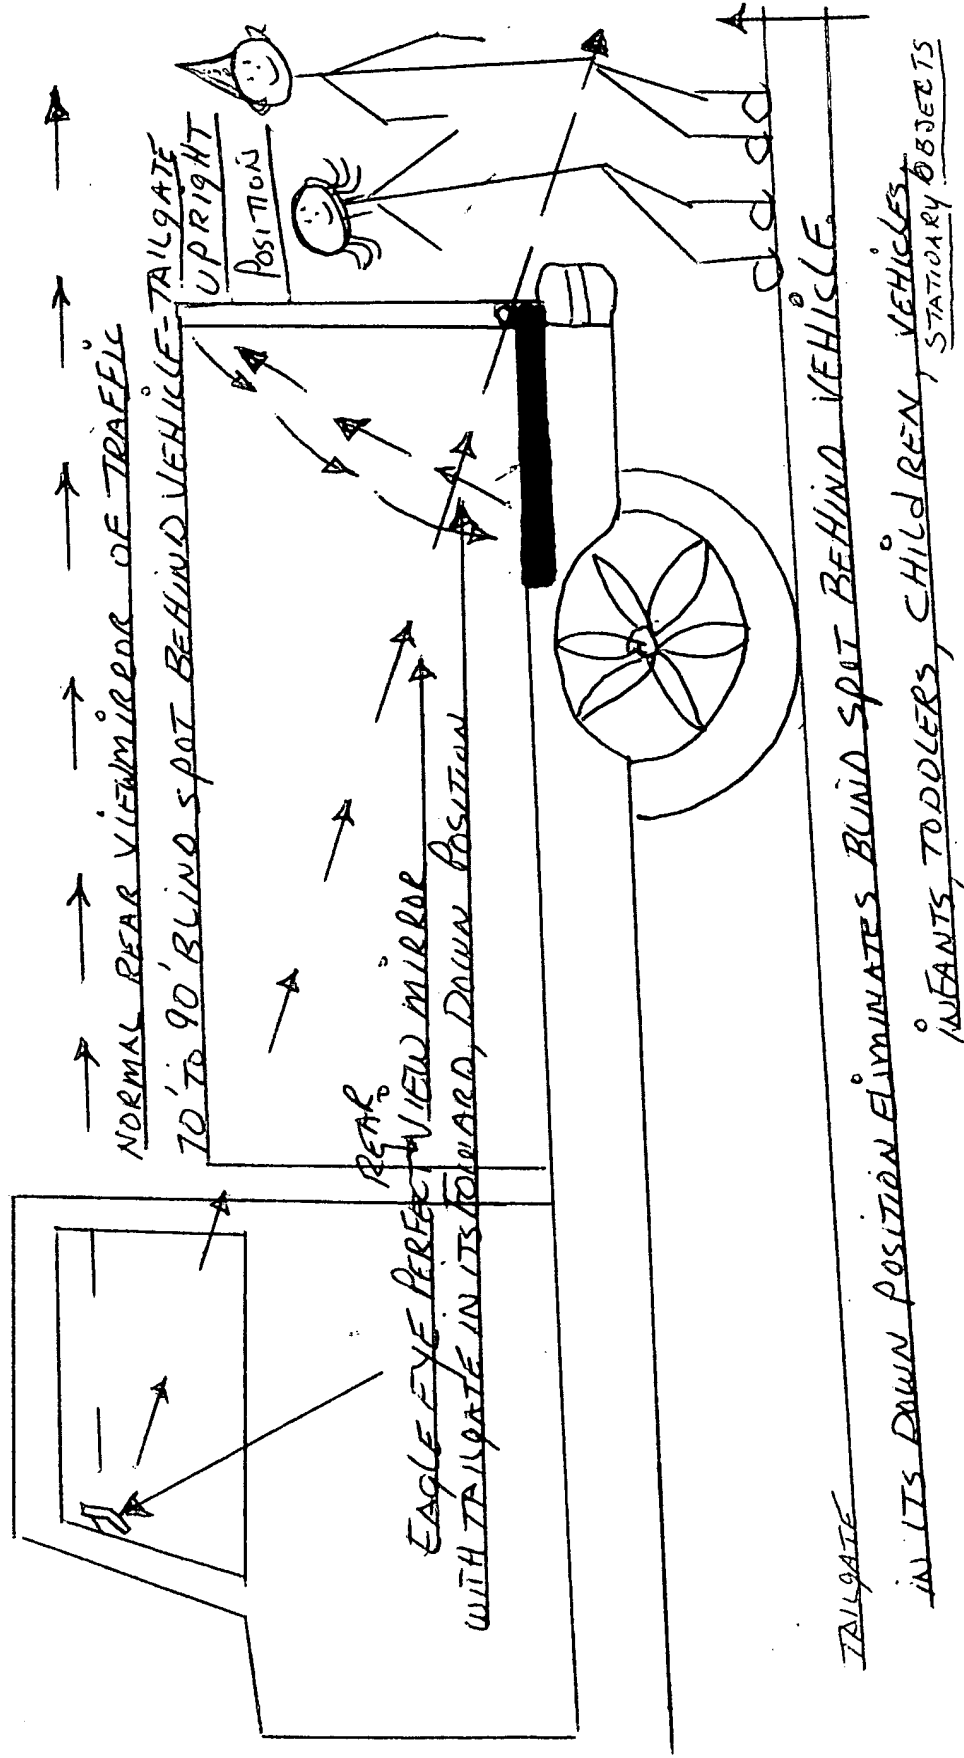 NORMAL REAR VIEW MIRROR OF TRAFFIC
70' TO 90' BLIND SPOT BEHIND VEHICLE-TAILGATE
UPRIGHT
POSITION
REAR
EAGLE EYE PERFECT VIEW MIRROR
WITH TAILGATE IN ITS FORWARD, DOWN POSITION
TAILGATE
IN ITS DOWN POSITION ELIMINATES BLIND SPOT BEHIND VEHICLE
INFANTS, TODDLERS, CHILDREN, VEHICLES,
STATIONARY OBJECTS